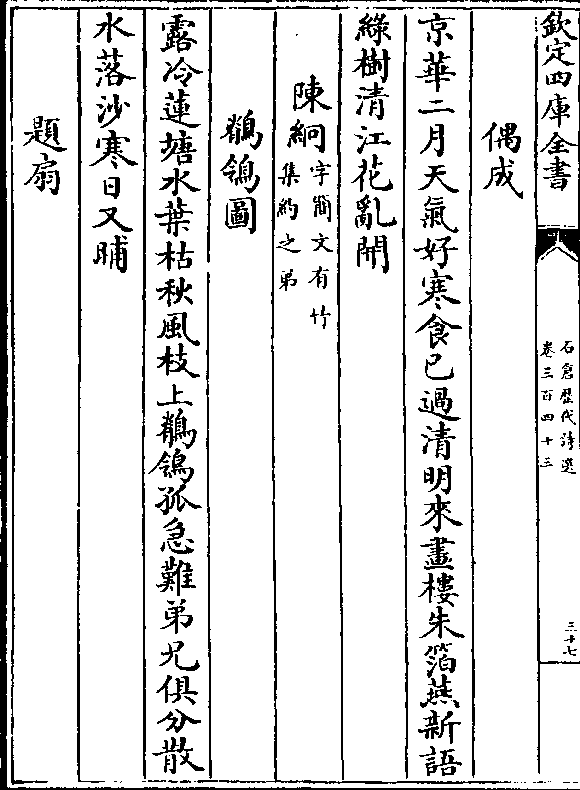 欽定四庫全書
石倉歷代詩選
卷三百四十三
三十七
偶成
京華二月天氣好寒食已過清明來畫樓朱箔燕新語
綠樹清江花亂開
陳絅字簡文有竹
集約之弟
鶺鴒圖
露冷蓮塘水葉枯秋風枝上鶺鴒孤急難弟兄俱分散
水落沙寒日又晡
題扇